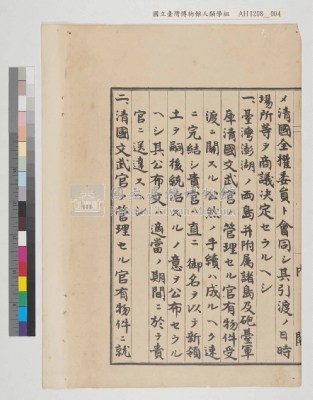 國立臺灣博物館人類學組 AH1208_004
メ清國全權委員ト會同シ其引渡ノ日時
場所等ヲ商議決定セラルヘシ
一、臺灣澎湖ノ兩島并附属諸島及砲臺軍
庫清國文武官ノ管理セル官有物件受
渡ニ關スル公然ノ手續ハ成ルヘク速
ニ完結シ貴官ハ直ニ御名ヲ以テ新領
土ヲ嗣後統治スルノ意ヲ公布セラル
ヘシ其公布文ハ適當ノ期間ニ於テ貴
官ニ送達スヘシ
二、清國文武官ノ管理セル官有物件ニ就
内閣